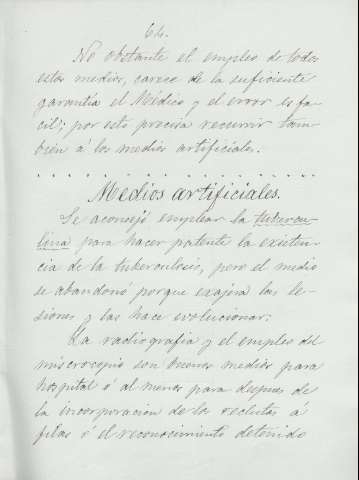 64.
No obstante el empleo de todos
estos medios, carece de la suficiente
garantía el Médico y el error es fa-
cil; por esto precisa recurrir tam-
bién á los medios artificiales.
Medios artificiales.
Se aconsejó emplear la tubercu-
lina para hacer patente la existen-
cia de la tuberculosis, pero el medio
se abandonó porque exajera las le-
siones y las hace evolucionar.
La radiografía y el empleo del
miscrocopio son buenos medios para
hospital ó al menos para despues de
la incorporación de los reclutas á
filas ó el reconocimiento detenido